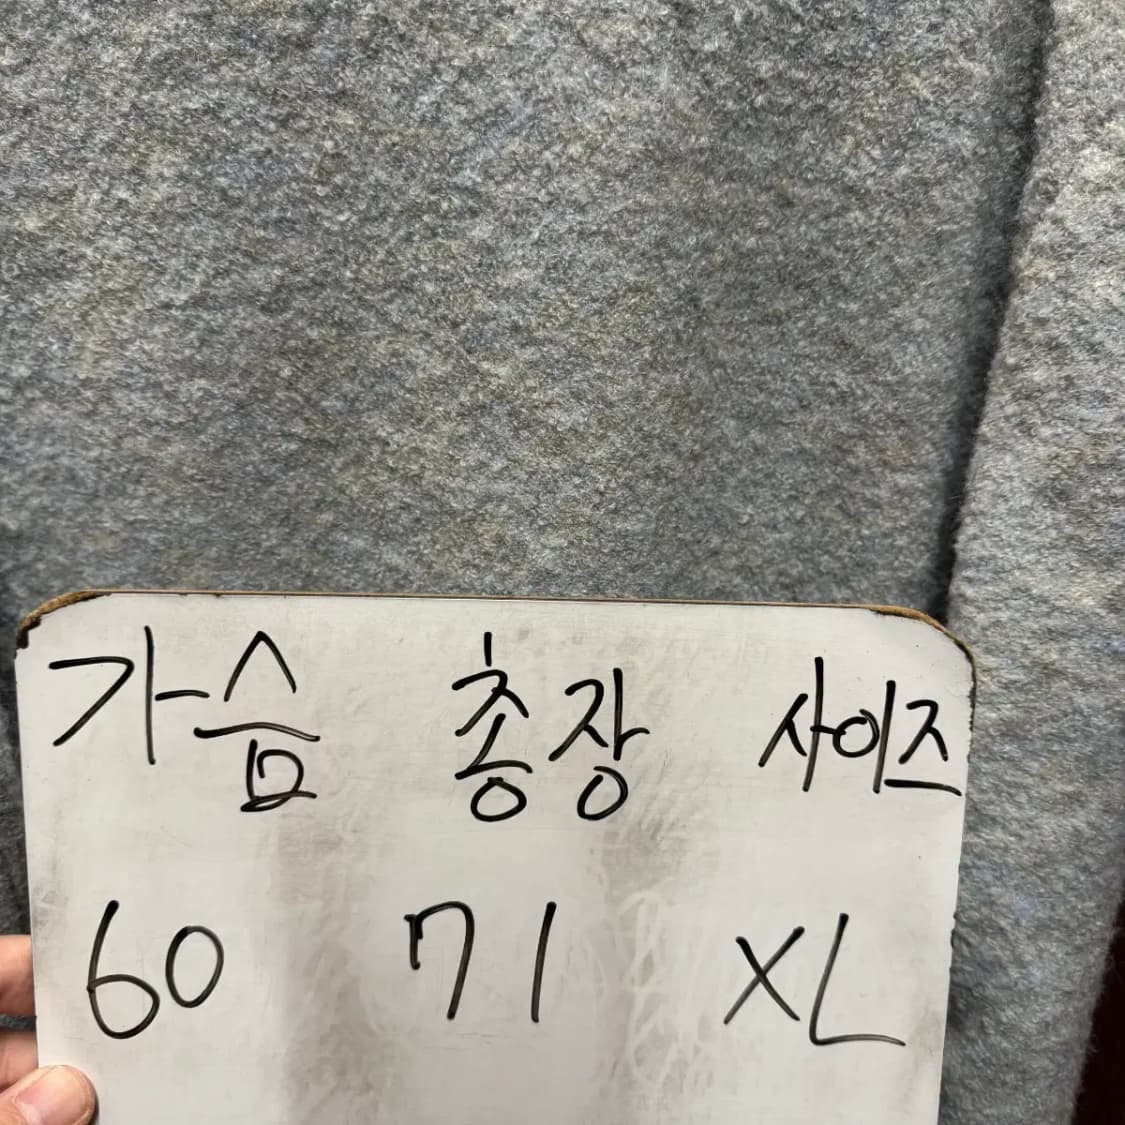 가슴 총장 사이즈
60 71 XL